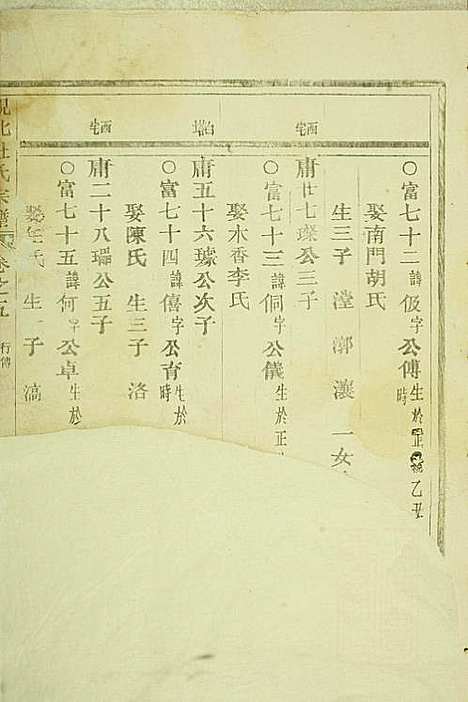 ○富七十二諱伋字公傅生於正統乙丑
時
娶南門胡氏
生三子 瀅 漷 瀼 一女
西宅
庸廿七璨公三子
○富七十三諱侗字公儀生於正
娶水香李氏
白塔
庸五十六璩公次子
○富七十四諱僖字公育生於
時
娶陳氏 生三子 洛
西宅
庸二十八瑠公五子
○富七十五諱何字公卓生於
娶 氏 生一子 滈
北杜氏宗譜 卷之五 行傳